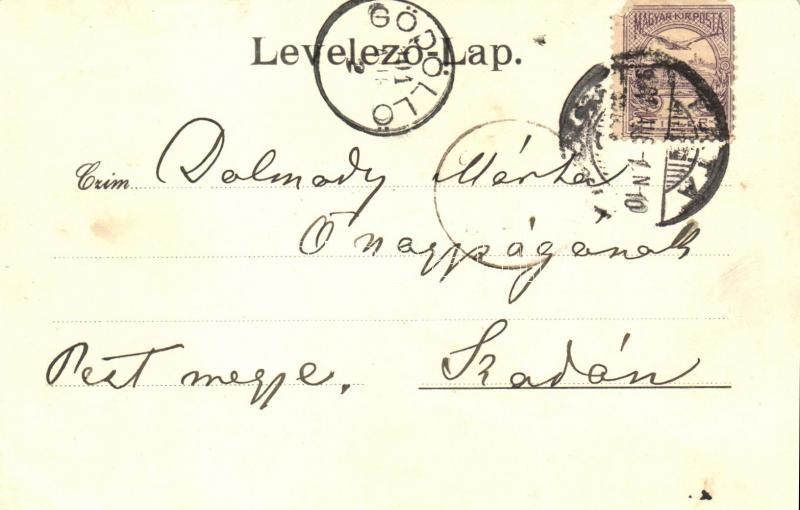 Levelező-Lap.
GÖDÖLLŐ
901
2
MAGYAR·KIR·POSTA
Czim Dalmady Márta
Ő nagyságának
Pest megye. Szadán